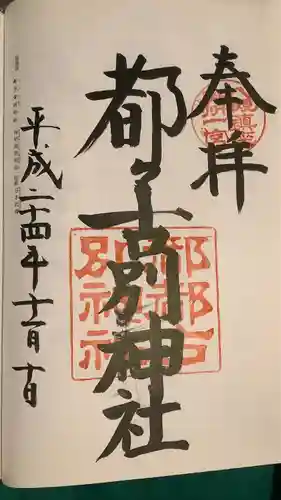 奉拝
都々古別神社
都都古別神社
平成二十四年十一月十日